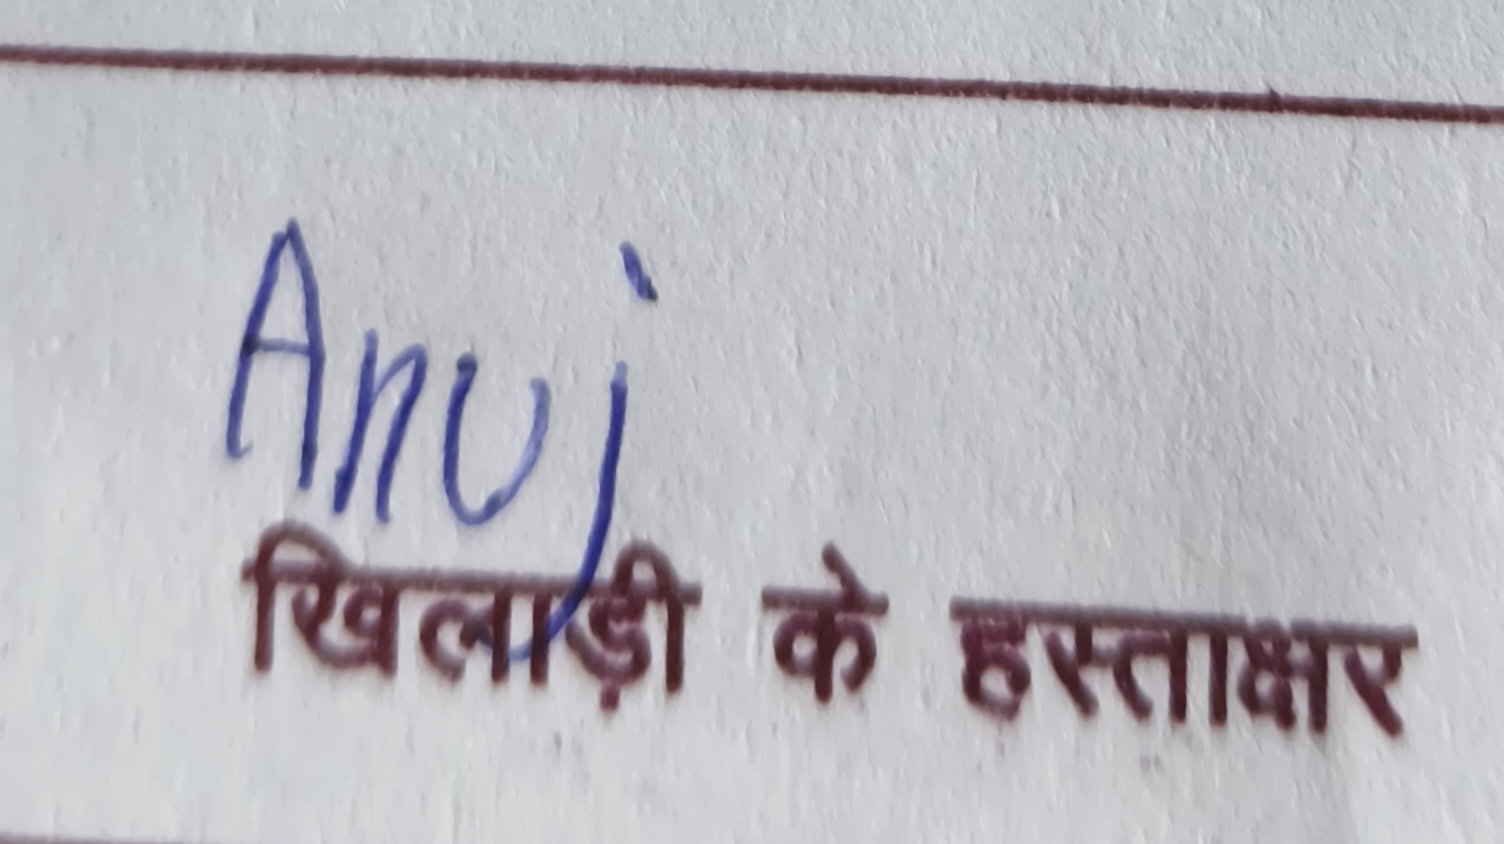 Anuj
खिलाड़ी के हस्ताक्षर